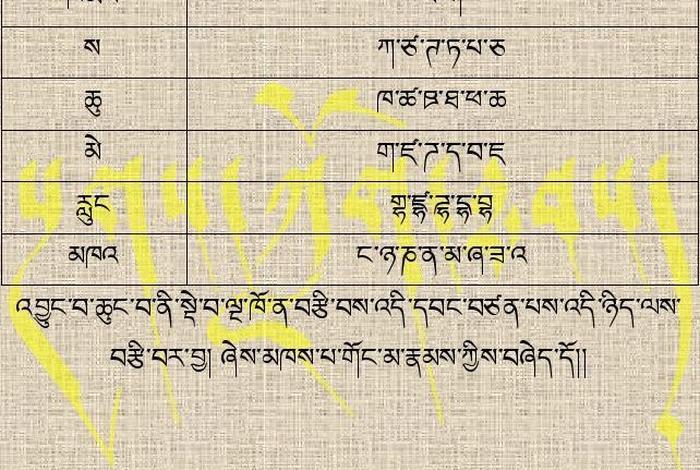 ས ཀ་ཙ་ཊ་ཏ་པ་ཅ
ཆུ ཁ་ཚ་ཋ་ཐ་ཕ་ཆ
མེ ག་ཛ་ཌ་ད་བ་ཇ
རླུང གྷ་ཛྷ་ཌྷ་དྷ་བྷ
མཁའ ང་ཉ་ཎ་ན་མ་ཞ་ཟ་འ
འབྱུང་བ་ཆུང་བ་ནི་སྡེ་བ་ལྔ་ཁོ་ན་བརྩི་བས་འདི་དབང་བཙན་པས་འདི་ཉིད་ལས་
བརྩི་བར་བྱ། ཞེས་མཁས་པ་གོང་མ་རྣམས་ཀྱིས་བཞེད་དོ།།